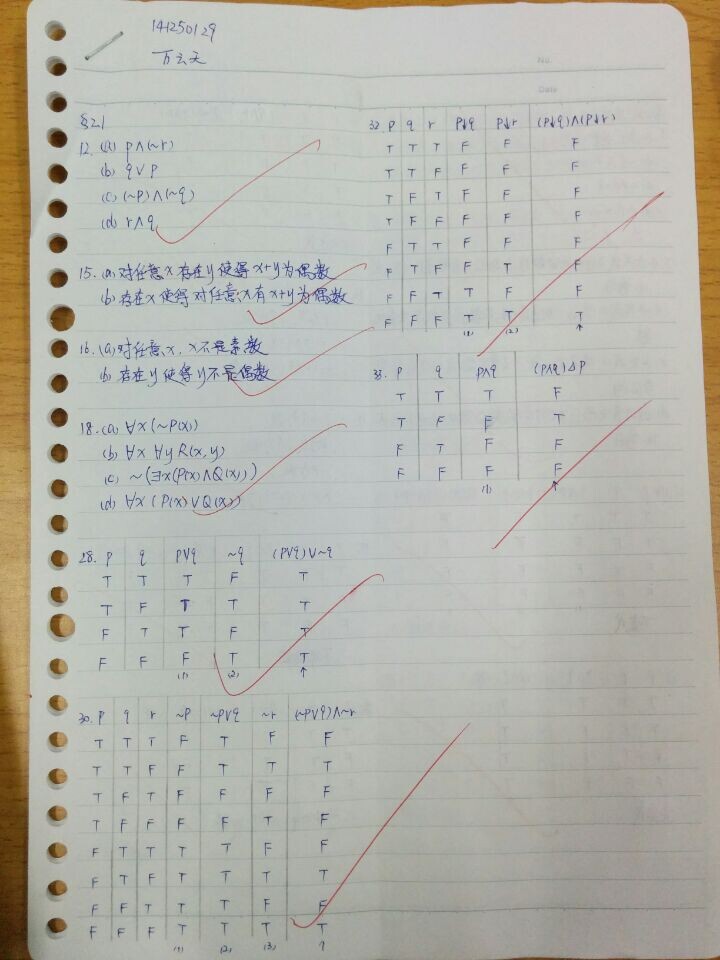 141250129
万云天
No.
Date
§2.1
12. (a) p∧(~r)
(b) q∨p
(c) (~p)∧(~q)
(d) r∧q
15. (a) 对任意x存在y使得x+y为偶数
(b) 存在x使得对任意x有x+y为偶数
16. (a) 对任意x, x不是素数
(b) 存在y使得y不是偶数
18. (a) ∀x(~P(x))
(b) ∀x ∀y R(x,y)
(c) ~(∃x(P(x)∧Q(x)))
(d) ∀x (P(x)∨Q(x))
28. p q p∨q ~q (p∨q)∨~q
T T T F T
T F T T T
F T T F T
F F F T T
(1) (2) ↑
30. p q r ~p ~p∨q ~r (~p∨q)∧~r
T T T F T F F
T T F F T T T
T F T F F F F
T F F F F T F
F T T T T F F
F T F T T T T
F F T T T F F
F F F T T T T
(1) (2) (3) ↑
32. p q r p↓q p↓r (p↓q)∧(p↓r)
T T T F F F
T T F F F F
T F T F F F
T F F F F F
F T T F F F
F T F F T F
F F T T F F
F F F T T T
(1) (2) ↑
33. p q p∧q (p∧q)△p
T T T F
T F F T
F T F F
F F F F
(1) ↑